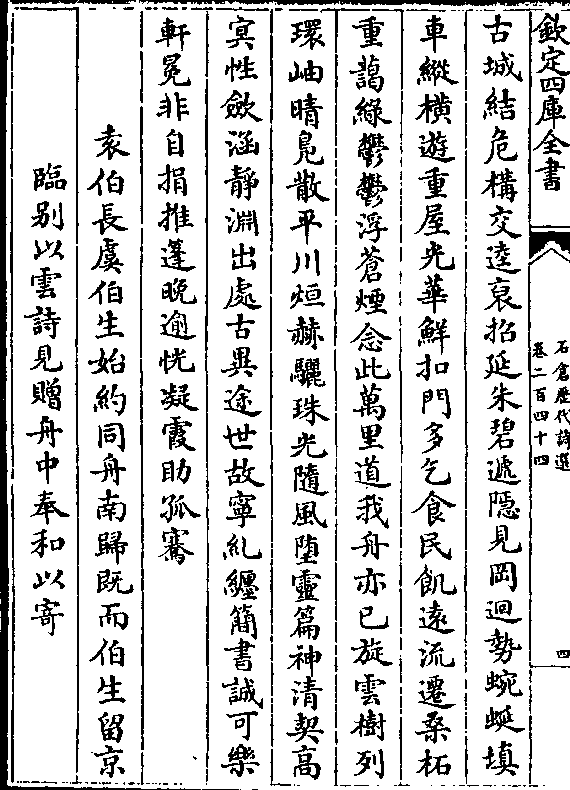 欽定四庫全書
石倉歷代詩選
卷二百四十四
四
古城結危構交逵裒招延朱碧遞隱見岡迴勢蜿蜒填
車縱橫遊重屋光華鮮扣門多乞食民飢遠流遷桑柘
重藹綠鬱鬱浮蒼煙念此萬里道我舟亦已旋雲樹列
環岫晴鳧散平川烜赫驪珠光隨風墮靈篇神清契高
㝠性斂涵靜淵出處古異途世故寧糺纏簡書誠可樂
軒冕非自捐推蓬晚逾恍凝霞助孤騫
袁伯長虞伯生始約同舟南歸既而伯生留京
臨别以雲詩見贈舟中奉和以寄